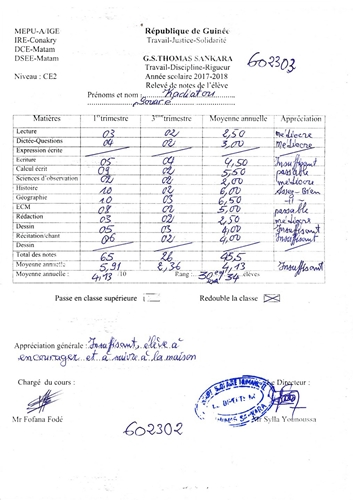 MEPU-A/IGE
République de Guinée
IRE-Conakry
Travail-Justice-Solidarité
DCE-Matam
DSEE-Matam
G.S.THOMAS SANKARA
602303
Travail-Discipline-Rigueur
Niveau : CE2
Année scolaire 2017-2018
Relevé de notes de l'élève
Prénoms et nom : Kadiatou
Souaré
Matières 1er trimestre 3ème trimestre Moyenne annuelle Appréciation
Lecture 03 02 2,50 médiocre
Dictée-Questions 04 02 3,00 médiocre
Expression écrite
Ecriture 05 04 4,50 Insuffisant
Calcul écrit 09 02 5,50 passable
Sciences d'observation 02 02 2,00 médiocre
Histoire 10 02 6,00 Assez-Bien
Géographie 10 03 6,50 -//-
ECM 08 02 5,00 passable
Rédaction 03 02 2,50 médiocre
Dessin 05 03 4,00 Insuffisant
Récitation/chant 06 02 4,00 Insuffisant
Dessin
Total des notes 65 26 45,5
Moyenne annuelle 5,91 2,36 4,13 Insuffisant
Moyenne annuelle : 4,13 /10 Rang : 30ème sur 34 élèves
Passe en classe supérieure Redouble la classe
Appréciation générale : Insuffisant, élève à
encourager et à suivre à la maison
Chargé du cours : Le Directeur :
Mr Fofana Fodé Mr Sylla Younoussa
602302